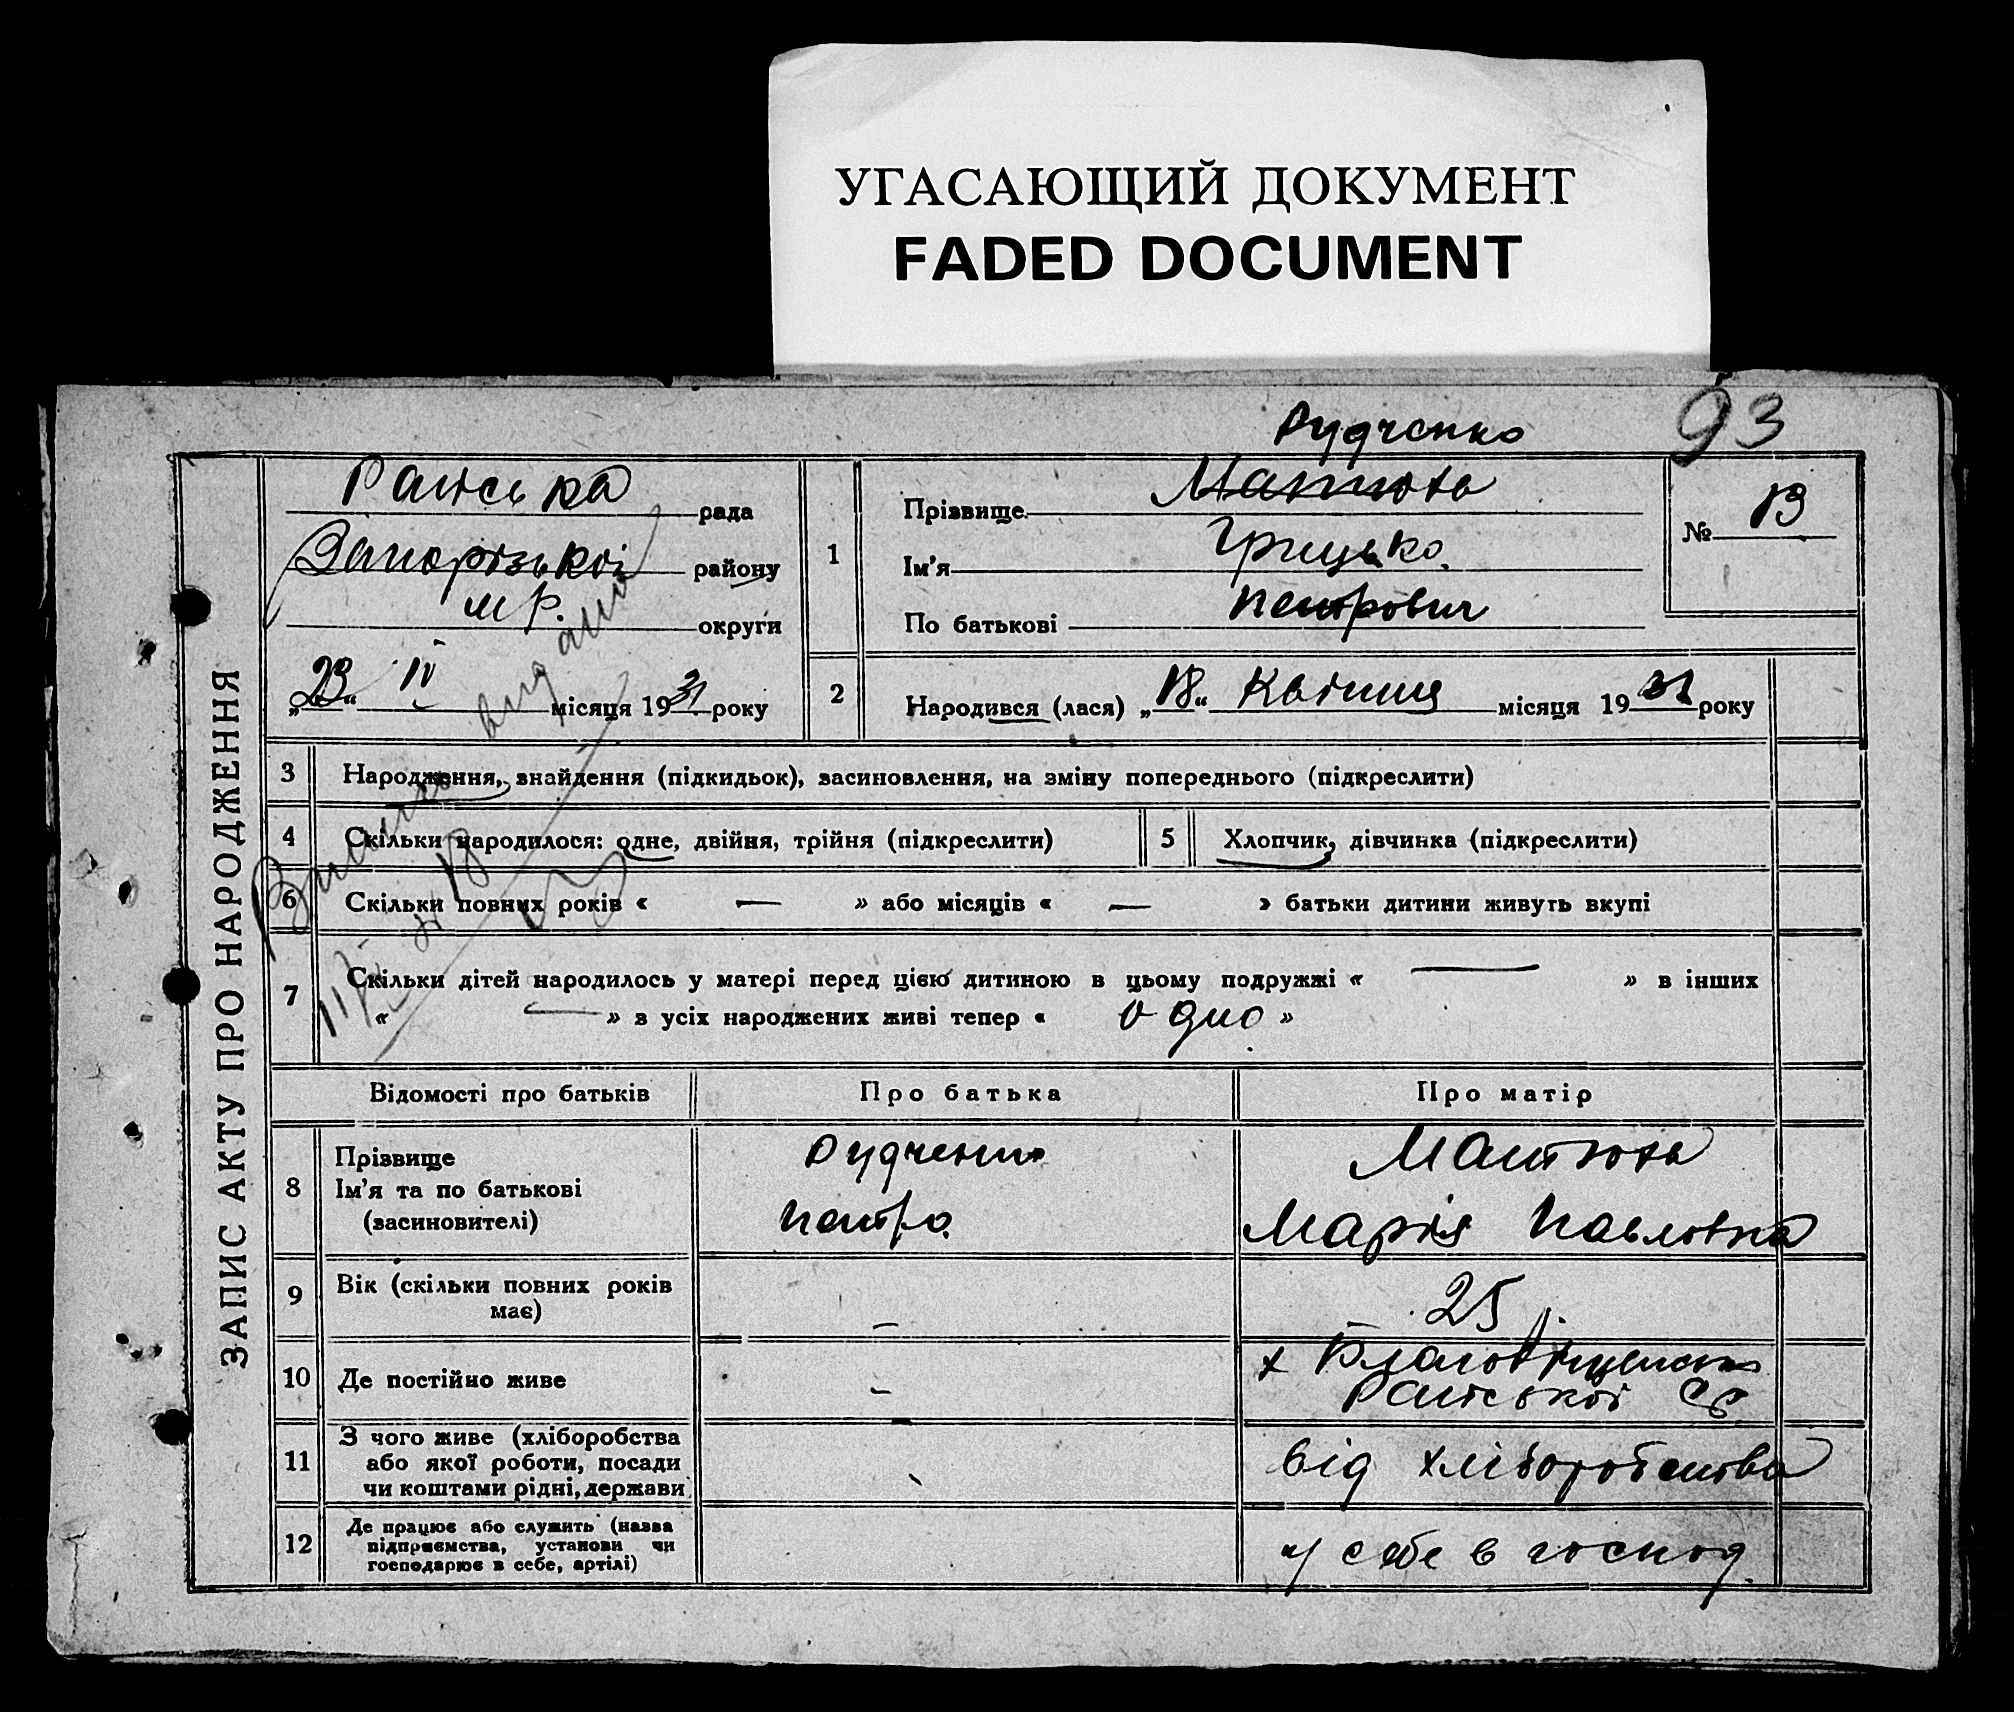 УГАСАЮЩИЙ ДОКУМЕНТ
FADED DOCUMENT
93
Рудченко
ЗАПИС АКТУ ПРО НАРОДЖЕННЯ
Раїська рада
Запорізької району
м р. округи
„23“ IV місяця 1931 року
1
Прізвище Матюха
Ім'я Грицько
По батькові Петрович
№ 13
2
Народився (лася) „18“ Квітня місяця 1931 року
3 Народження, знайдення (підкидьок), засиновлення, на зміну попереднього (підкреслити)
4 Скільки народилося: одне, двійня, трійня (підкреслити)
5 Хлопчик, дівчинка (підкреслити)
6 Скільки повних років « — » або місяців « — » батьки дитини живуть вкупі
7 Скільки дітей народилось у матері перед цією дитиною в цьому подружжі « — » в інших
« — » з усіх народжених живі тепер « одно »
Відомості про батьків
Про батька
Про матір
8 Прізвище
Ім'я та по батькові
(засиновителі)
Рудченко
Петро
Матюха
Марія Павловна
9 Вік (скільки повних років
має)
—
25
10 Де постійно живе
—
х Благовіщенськ
Раїської СР
11 З чого живе (хліборобства
або якої роботи, посади
чи коштами рідні, держави
від хліборобства
12 Де працює або служить (назва
підприємства, установи чи
господарює в себе, артілі)
у себе в господ.